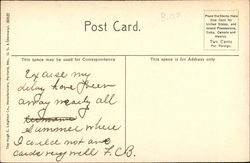 8.00
Post Card.
Place the Stamp Here
One Cent for
United States, and
Island Possessions,
Cuba, Canada and
Mexico
Two Cents
For Foreign.
This space may be used for Correspondence
This space is for Address only
The Hugh C. Leighton Co., Manufacturers, Portland, Me., U.S.A.
Excuse my
delay have been
away nearly all
Summer where
I could not
cards very well F.C.B.